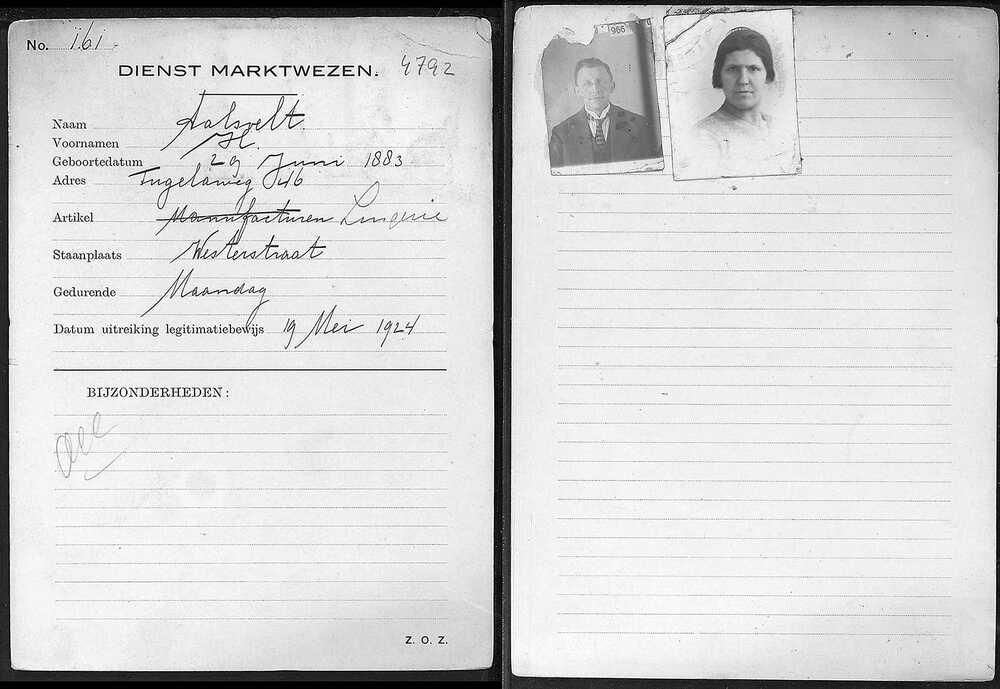 No. 161.
DIENST MARKTWEZEN. 4792
Naam Aalsvelt.
Voornamen H.
Geboortedatum 29 Juni 1883
Adres Tugelaweg 46
Artikel Manufacturen Lingerie
Staanplaats Westerstraat
Gedurende Maandag
Datum uitreiking legitimatiebewijs 19 Mei 1924
BIJZONDERHEDEN:
Z. O. Z.
966